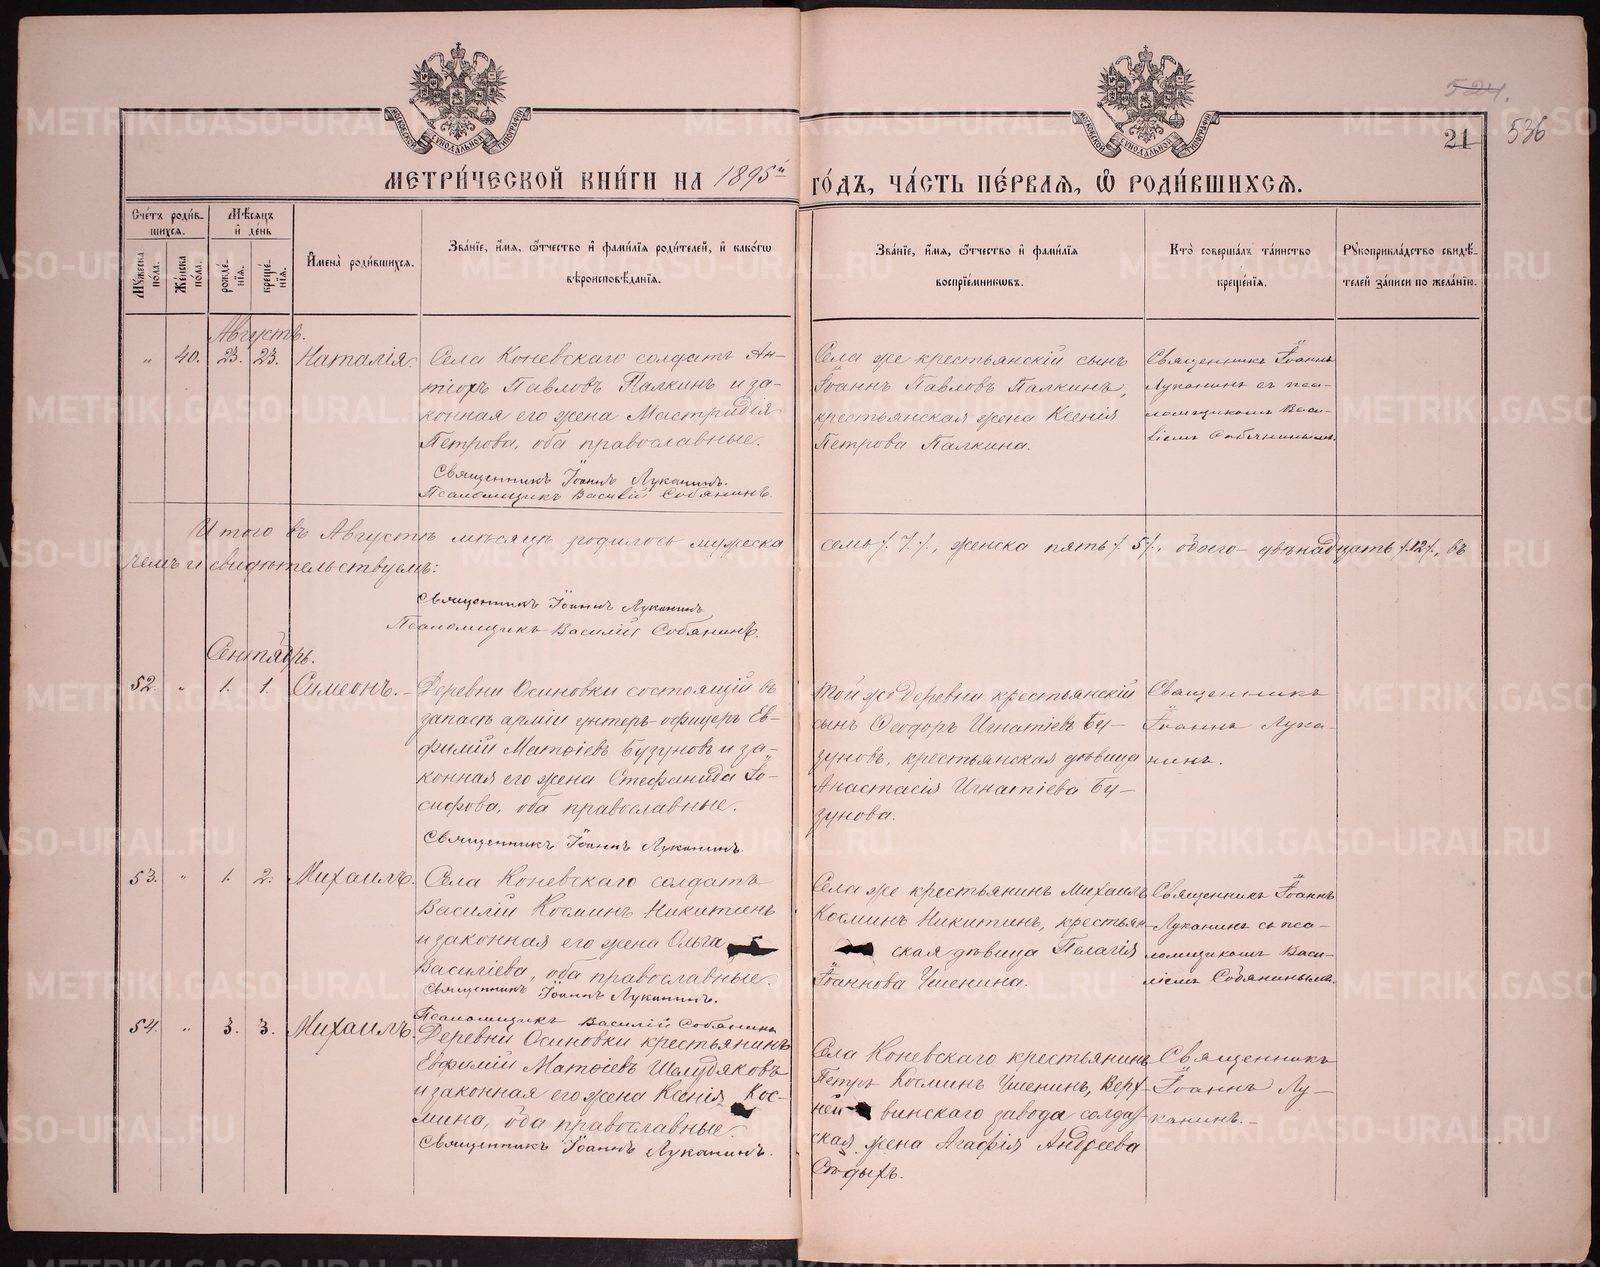 524.
21 536
МОСКОВСКОЙ СѴНОДАЛЬНОЙ ТИПОГРАФІИ
МОСКОВСКОЙ СѴНОДАЛЬНОЙ ТИПОГРАФІИ
МЕТРИ́ЧЕСКОЙ КНИ́ГИ НА 1895й ГО́ДЪ, ЧА́СТЬ ПЕ́РВАѦ, Ѡ РОДИ́ВШИХСѦ.
Сче́тъ роди́в-
шихсѧ.
Му́жеска
по́ла.
Же́нска
по́ла.
Мѣ́сѧцъ
и де́нь
рожде́-
нїѧ.
креще́-
нїѧ.
И҆мена̀ роди́вшихсѧ.
Зва́нїе, и҆́мѧ, ѻ҆́тчество и҆ фами́лїѧ роди́телей, и҆ како́гѡ
вѣроисповѣ́данїѧ.
Зва́нїе, и҆́мѧ, ѻ҆́тчество и҆ фами́лїѧ
воспрїе́мникѡвъ.
Кто̀ соверша́лъ та́инство
креще́нїѧ.
Рꙋкоприкла́дство свидѣ́-
телей за́писи по жела́нїю.
Августъ.
" 40. 23. 23. Наталія.
Села Коневскаго солдатъ Ан-
тіохъ Павловъ Палкинъ и за-
конная его жена Мастридія
Петрова, оба православные.
Священникъ Іоаннъ Луканинъ.
Псаломщикъ Василій Собянинъ.
Села же крестьянскій сынъ
Іоаннъ Павловъ Палкинъ,
крестьянская жена Ксенія
Петрова Палкина.
Священникъ Іоаннъ
Луканинъ съ пса-
ломщикомъ Васи-
ліемъ Собянинымъ.
Итого въ Августѣ мѣсяцѣ родилось мужеска семь /.7/., женска пять /.5/., обоего двѣнадцать /.12/., въ
чемъ и свидѣтельствуемъ:
Священникъ Іоаннъ Луканинъ
Псаломщикъ Василій Собянинъ.
Сентябрь.
52. " 1. 1. Симеонъ.
Деревни Осиновки состоящій въ
запасѣ арміи унтеръ-офицеръ Ев-
фимій Матѳіевъ Бузуновъ и за-
конная его жена Стефанида Іо-
сифова, оба православные.
Священникъ Іоаннъ Луканинъ.
Той же деревни крестьянскій
сынъ Ѳеодоръ Игнатіевъ Бу-
зуновъ, крестьянская дѣвица
Анастасія Игнатіева Бу-
зунова.
Священникъ
Іоаннъ Лука-
нинъ.
53. " 1. 2. Михаилъ.
Села Коневскаго солдатъ
Василій Косминъ Никитинъ
и законная его жена Ольга
Василіева, оба православные.
Священникъ Іоаннъ Луканинъ.
Псаломщикъ Василій Собянинъ
Села же крестьянинъ Михаилъ
Косминъ Никитинъ, крестьян-
ская дѣвица Пелагія
Іоаннова Ушенина.
Священникъ Іоаннъ
Луканинъ съ пса-
ломщикомъ Васи-
ліемъ Собянинымъ.
54. " 3. 3. Михаилъ.
Деревни Осиновки крестьянинъ
Евфимій Матѳіевъ Шелудяковъ
и законная его жена Ксенія Кос-
мина, оба православные.
Священникъ Іоаннъ Луканинъ.
Села Коневскаго крестьянинъ
Петръ Косминъ Ушенинъ, Верх-
ней винскаго завода солдат-
ская жена Агафія Андреева
Сѣдыхъ.
Священникъ
Іоаннъ Лу-
канинъ.
METRIKI.GASO-URAL.RU